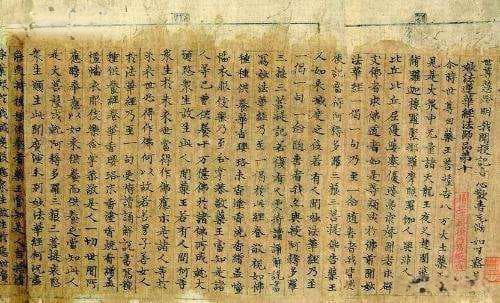 世尊慧燈明 我聞授記音 心歡喜充滿 如甘露
妙法蓮華經法師品第十
尒時世尊因藥王菩薩告八万大士藥王汝
見是大眾中无量諸天龍王夜叉乾闥婆阿
脩羅迦樓羅緊那羅摩睺羅伽人與非人及
比丘比丘尼優婆塞優婆夷求聲聞者求辟
支佛者求佛道者如是等類咸於佛前聞妙
法華經一偈一句乃至一念隨喜者我皆與授
記當得阿耨多羅三藐三菩提佛告藥王
又如來滅度之後若有人聞妙法華經乃至
一偈一句一念隨喜者我亦與授阿耨多羅
三藐三菩提記若復有人受持讀誦解說書
寫妙法華經乃至一偈於此經卷敬視如佛
種種供養華香瓔珞末香塗香燒香繒盖幢
幡衣服伎樂乃至合掌恭敬藥王當知是諸
人等已曾供養十万億佛於諸佛所成就大
願愍眾生故生此人間藥王若有人問何等
眾生於未來世當得作佛應示是諸人等於
未來世必得作佛何以故若善男子善女人
於法華經乃至一句受持讀誦解說書寫種
種供養經卷華香瓔珞末香塗香燒香繒盖
幢幡衣服伎樂合掌恭敬是人一切世間所
應瞻奉應以如來供養而供養之當知此人
是大菩薩成就阿耨多羅三藐三菩提哀愍
眾生願生此間廣演分別妙法華經何況盡
能受持種種供養者藥王當知是人自捨清